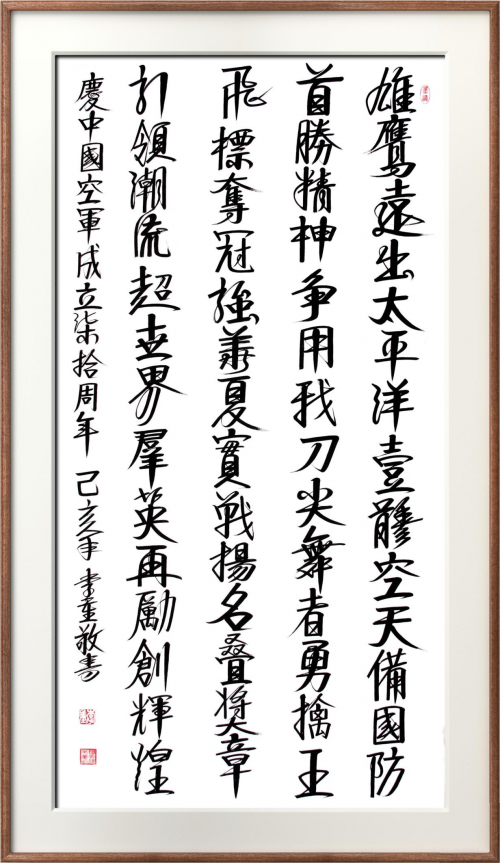 雄鷹遠出太平洋壹體空天備國防
首勝精神争用我刀尖舞者勇擒王
飛標奪冠強華夏實戰揚名叠奬章
引領潮流超世界羣英再勵創輝煌
慶中國空軍成立柒拾周年 己亥年 李 敬書